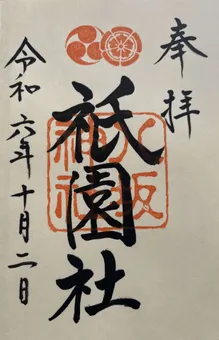 奉拝
祇園社
八坂神社
令和六年十月二日